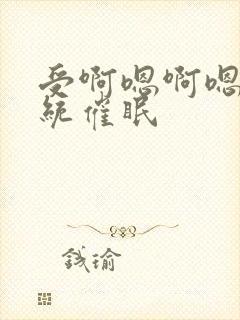 受啊嗯啊嗯
統催眠
钱瑜